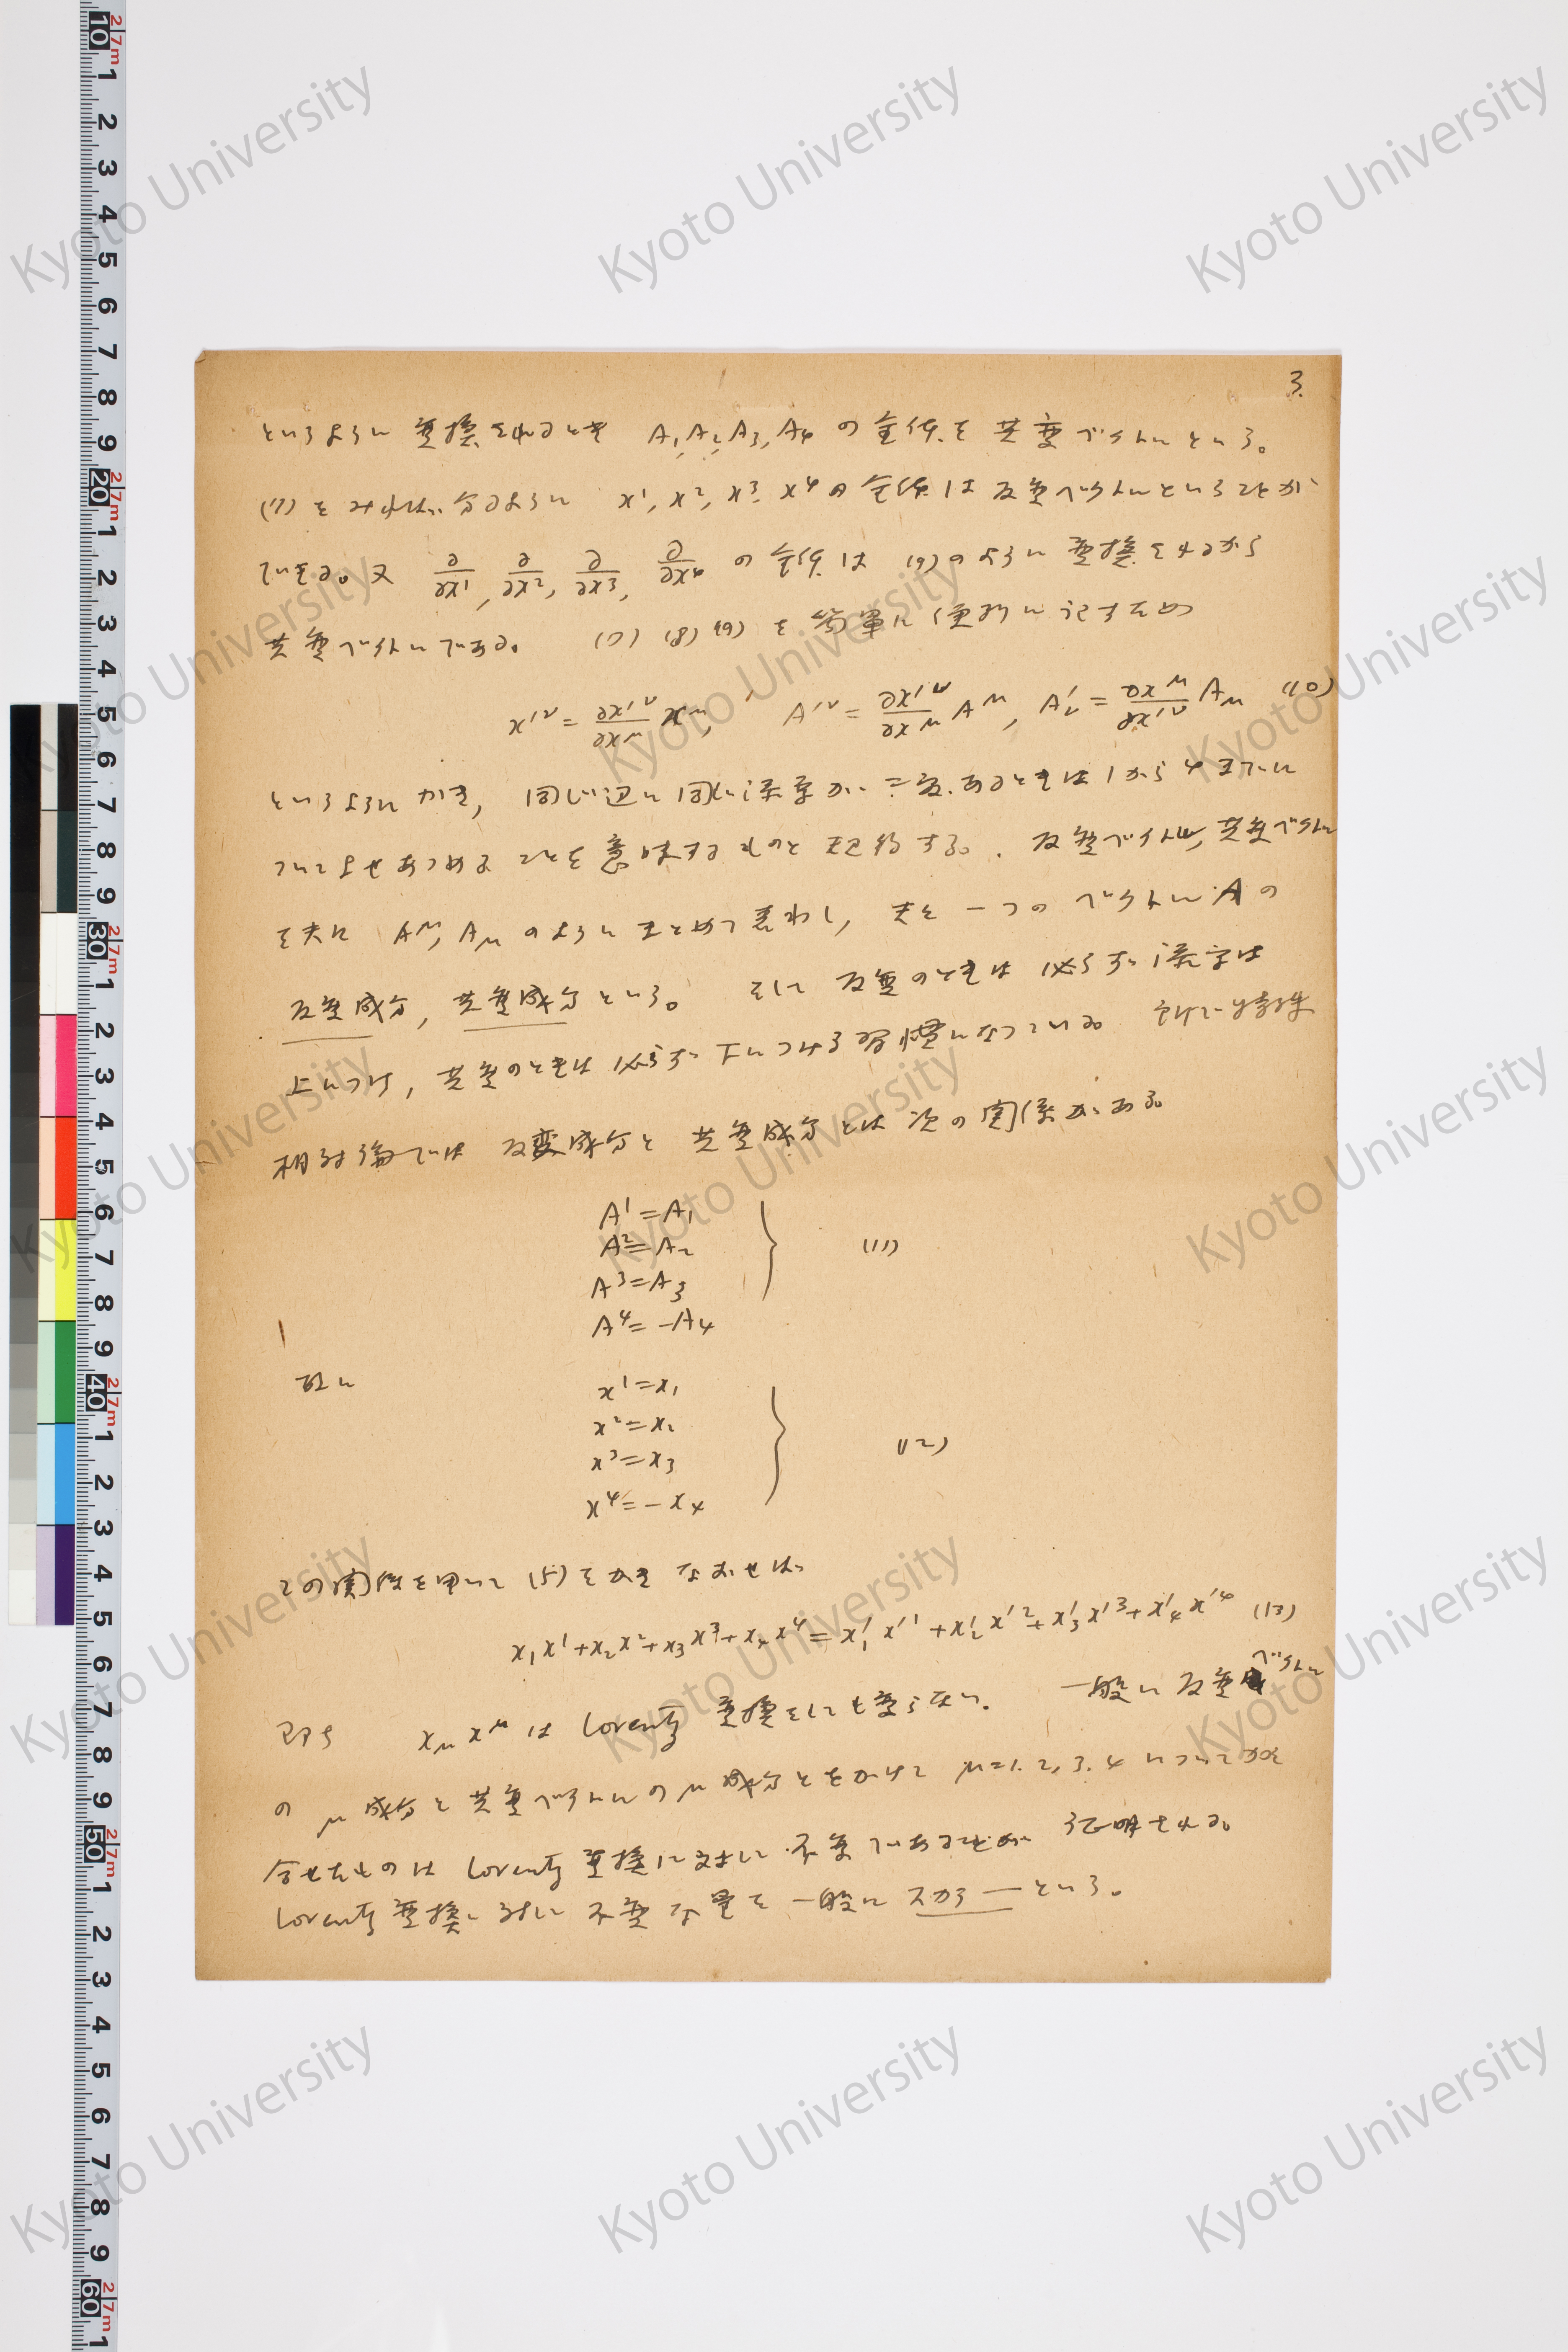 3.
というように変換されるとき A₁, A₂, A₃, A₄ の全体を共変ベクトルという。
(7)をみれば分るように x¹, x², x³, x⁴ の全体は反変ベクトルということが
できる。又 ∂/∂x¹, ∂/∂x², ∂/∂x³, ∂/∂x⁴ の全体は (9)のように変換されるから
共変ベクトルである。 (7) (8) (9) を簡単に便利に記すため
x'^ν = ∂x'^ν/∂x^μ x^μ, A'^ν = ∂x'^ν/∂x^μ A^μ, A'_ν = ∂x^μ/∂x'^ν A_μ (10)
というようにかき, 同じ辺に同じ添字が二度あるときは1から4までに
ついてよせあつめることを意味するものと規約する。反変ベクトル, 共変ベクトル
を夫々 A^μ, A_μ のようにまとめて表わし, 夫を一つのベクトル A の
反変成分, 共変成分という。 そして反変のときは必らず添字は
上につけ, 共変のときは必らず下につける習慣になっている。 特殊
相対論では反変成分と共変成分とは次の関係がある。
A¹ = A₁
A² = A₂
A³ = A₃
A⁴ = -A₄
(11)
故に
x¹ = x₁
x² = x₂
x³ = x₃
x⁴ = -x₄
(12)
この関係を用いて (5) をかきなおせば
x₁x¹ + x₂x² + x₃x³ + x₄x⁴ = x'₁x'¹ + x'₂x'² + x'₃x'³ + x'₄x'⁴ (13)
即ち x_μ x^μ は Lorentz 変換をしても変らない。 一般に反変ベクトル
の μ 成分と共変ベクトルの μ 成分とをかけて μ=1, 2, 3, 4 について加え
合せたものは Lorentz 変換に対して不変であることが証明される。
Lorentz 変換に対して不変な量を一般にスカラーという。
Kyoto University